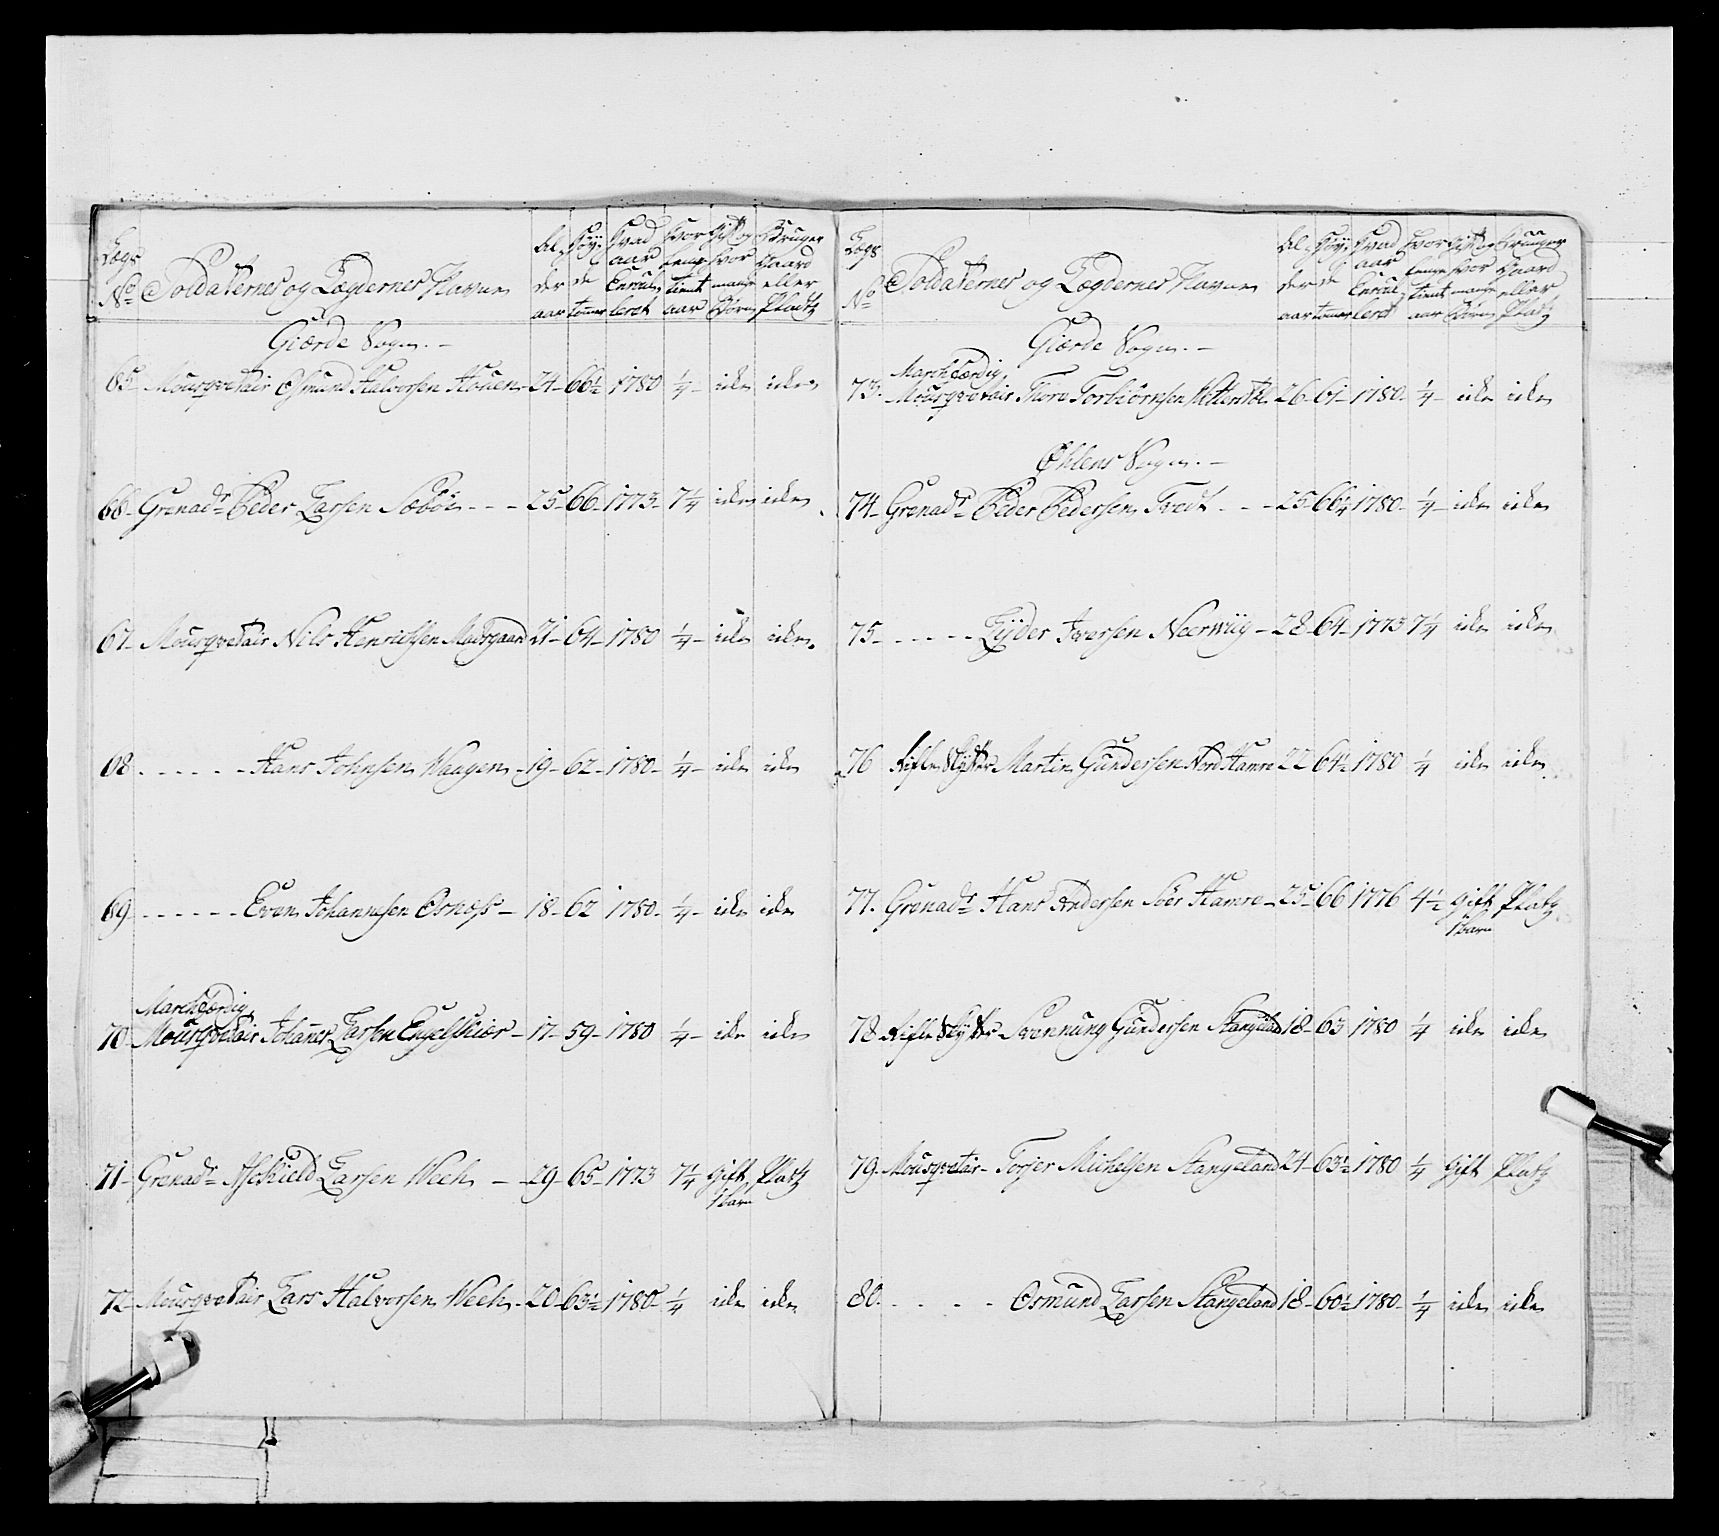 Lægs No Soldaternes og Lægdernes Navne Alder aar Høyde tommer Hvad aar Enrouleret Hvor lenge tient aar Gift og hvor mange Børn Bruger Gaard eller Pladtz
Gierde Sogn. –
65 Mousqvetair Osmund Halvorsen Houen 24 – 66½ 1780 ¼ – icke icke
66 – Grenadr Peder Larsen Sæbøe – – – 25 – 66 – 1773 – 7¼ icke icke
67 – Mousqvetair Nils Henrichsen Madsgaard 21 – 64 – 1780 ¼ – icke icke
68 . – – – – – Hans Johnsen Waagen – 19 – 62 – 1780 – ¼ – icke icke
69 . – – – – – Even Johannesen Osnæss – 18 – 62 1780 – ¼ – icke icke
Marchfærdig
70 Mousqvetair Johannes Larsen Engelskiær – 17 – 59 – 1780 ¼ – icke icke
71 – Grenadr Aschield Larsen Wech – – 29 – 65 – 1773 7¼ Gift Platz
1 barn
72 – Mousqvetair Lars Halvorsen Wech – 20 – 63½ 1780 – ¼ icke icke
Lægs No Soldaternes og Lægdernes Navne Alder aar Høyde tommer Hvad aar Enrouleret Hvor lenge tient aar Gift og hvor mange Børn Bruger Gaard eller Platz
Gierde Sogn. –
Marchfærdig
73. Mousqvetair Thore Torbiørnsen 26 – 61 – 1780 – ¼ – icke icke
Øhlens Sogn. –
74 – Grenadr Peder Pedersen Tvedt . – – 25 – 66¼ 1780 – ¼ – icke icke
75 – – – – – – Lyder Iversen Neerwiig – 28 – 64 – 1773 7¼ icke icke
76 Rifle Skytter Martin Gundersen Nord Hamre 22 64½ 1780 ¼ icke icke
77. Grenadr Hans Andersen Söer Hamre – 25 – 66 1776 4½ gift Platz
1 barn
78 Rifle Skytter Svennung Gundersen Stangeland 18 – 63 1780 ¼ icke icke
79. Mousqvetair – Torjer Michelsen Stangeland 24 – 63½ 1780 ¼ Gift Platz
80. – – – – Osmund Larsen Stangeland 18 – 60½ 1780 – ¼ icke icke